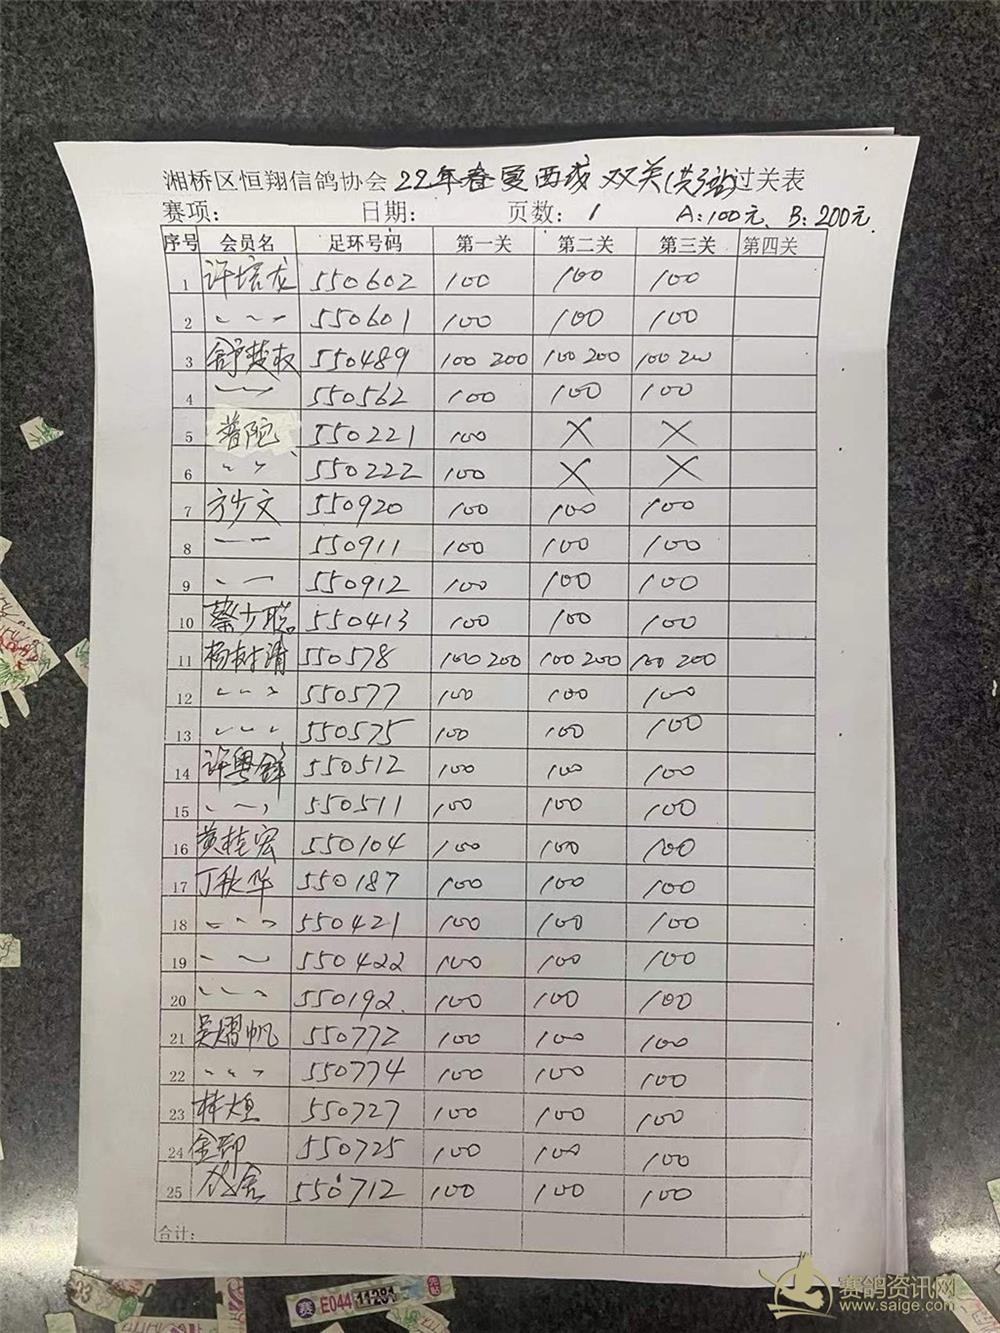 湘桥区恒翔信鸽协会22年春夏西线双关(共3站)过关表
赛项: 日期: 页数: 1 A:100元、B:200元.
序号 会员名 足环号码 第一关 第二关 第三关 第四关
1 许培龙 550602 100 100 100
2 〃 550601 100 100 100
3 舒楚权 550489 100 200 100 200 100 200
4 〃 550562 100 100 100
5 普陀 550221 100 × ×
6 〃 550222 100 × ×
7 方少文 550920 100 100 100
8 〃 550911 100 100 100
9 〃 550912 100 100 100
10 蔡少聪 550413 100 100 100
11 杨树清 550578 100 200 100 200 100 200
12 〃 550577 100 100 100
13 〃 550575 100 100 100
14 许粤锋 550512 100 100 100
15 〃 550511 100 100 100
16 黄桂宏 550104 100 100 100
17 丁秋华 550187 100 100 100
18 〃 550421 100 100 100
19 〃 550422 100 100 100
20 〃 550192 100 100 100
21 吴熠帆 550772 100 100 100
22 〃 550774 100 100 100
23 林烜 550727 100 100 100
24 550725 100 100 100
25 550712 100 100 100
合计:
赛 E044
赛鸽资讯网
www.saige.com